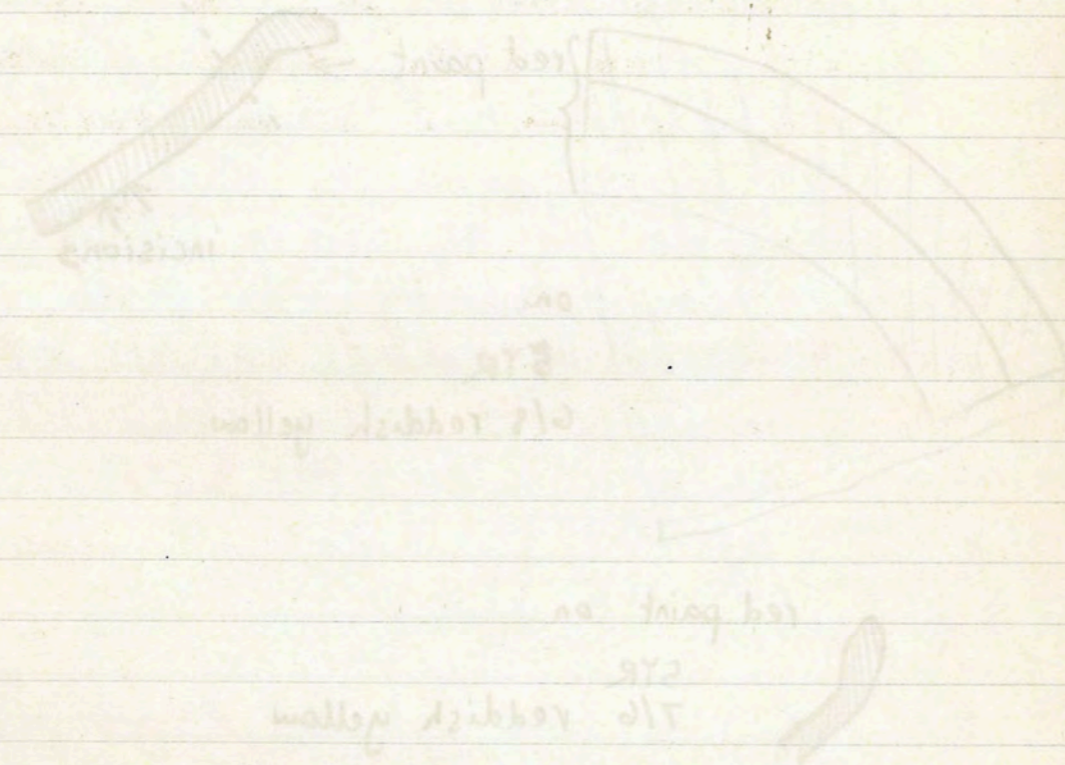 red paint
incisions
on
5YR
6/8 reddish yellow
red paint on
5YR
7/6 reddish yellow